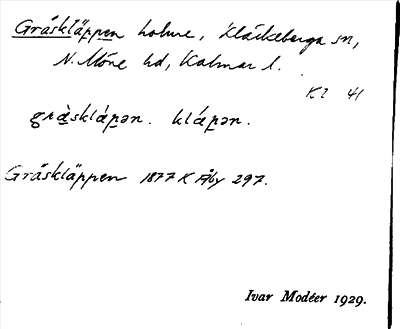 Gräskläppen holme, Kläckeberga sn,
N. Möre hd, Kalmar l.
Kl 41
gräskläpən. kläpən.
Gräskläppen 1877 K Åby 297.
Ivar Modéer 1929.